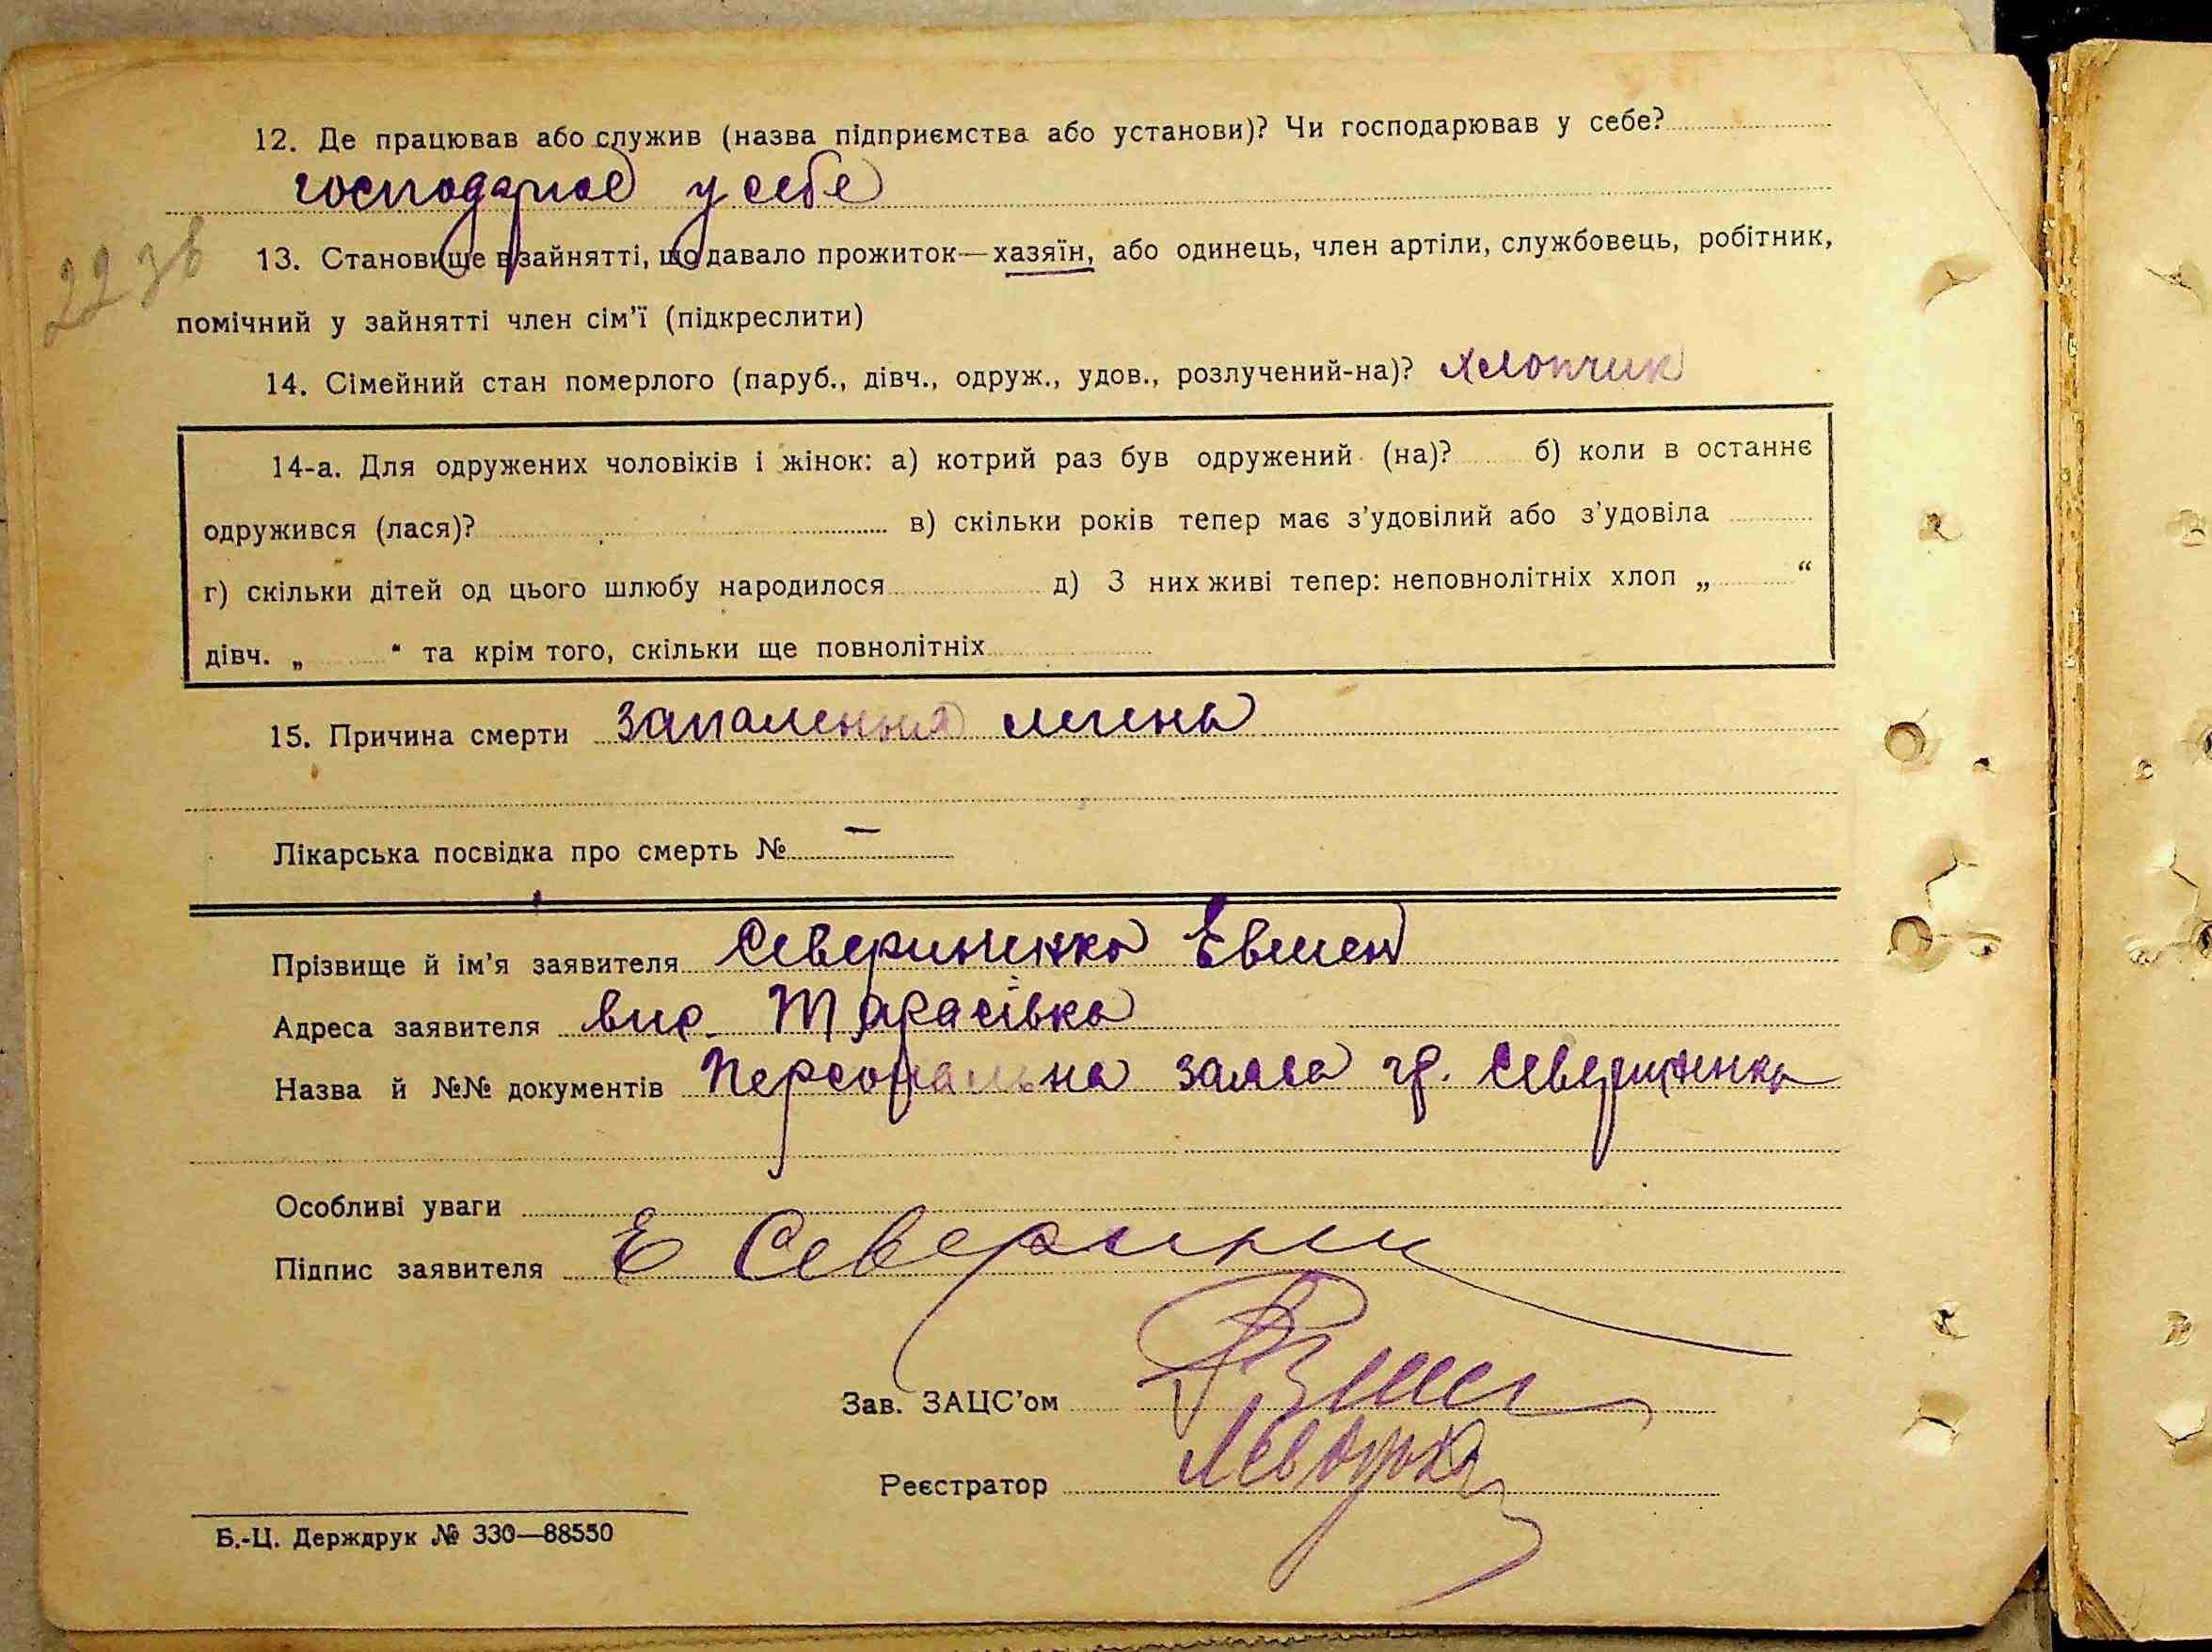 12. Де працював або служив (назва підприємства або установи)? Чи господарював у себе?
господарює у себе
22 зв
13. Становище в зайнятті, що давало прожиток—хазяїн, або одинець, член артіли, службовець, робітник,
помічний у зайнятті член сім'ї (підкреслити)
14. Сімейний стан померлого (паруб., дівч., одруж., удов., розлучений-на)? хлопчик
14-а. Для одружених чоловіків і жінок: а) котрий раз був одружений (на)? б) коли в останнє
одружився (лася)? в) скільки років тепер має з'удовілий або з'удовіла
г) скільки дітей од цього шлюбу народилося д) З них живі тепер: неповнолітніх хлоп „ “
дівч. „ “ та крім того, скільки ще повнолітніх
15. Причина смерти запалення легень
Лікарська посвідка про смерть № —
Прізвище й ім'я заявителя Севериненко Евмен
Адреса заявителя вис. Тарасівка
Назва й №№ документів Персональна заява гр. Севериненка
Особливі уваги
Підпис заявителя Е Северинен
Зав. ЗАЦС'ом
Реєстратор
Б.-Ц. Держдрук № 330—88550